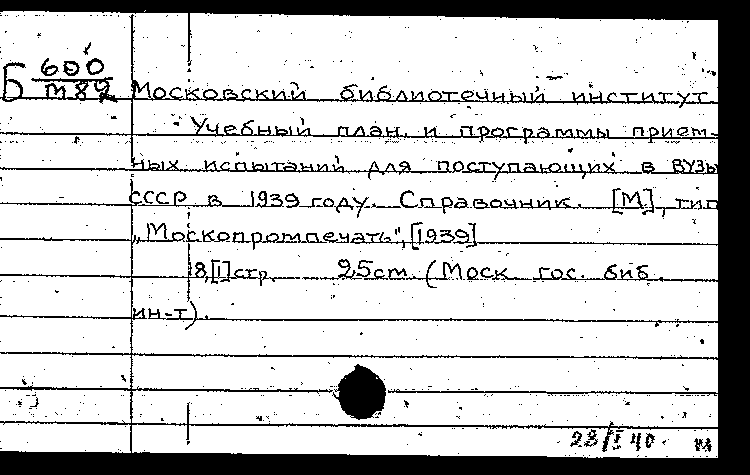 Б 600
М82 Московский библиотечный институт.
Учебный план и программы прием-
ных испытаний для поступающих в ВУЗы
СССР в 1939 году. Справочник. [М], тип
„Москопромпечать", [1939]
8,[I] стр. 25 cm. (Моск. гос. биб.
ин-т).
28/I 40. м